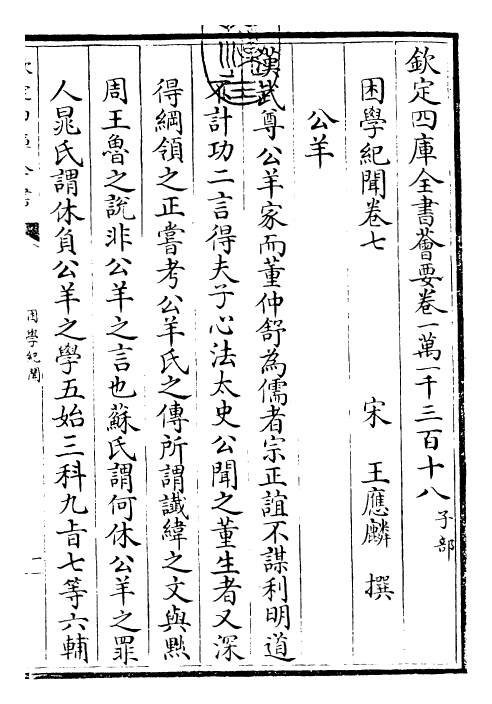 欽定四庫全書薈要卷一萬一千三百十八 子部
困學紀聞卷七
宋 王應麟 撰
公羊
漢武尊公羊家而董仲舒為儒者宗正誼不謀利明道
不計功二言得夫子心法太史公聞之董生者又深
得綱領之正嘗考公羊氏之傳所謂讖緯之文與黜
周王魯之說非公羊之言也蘇氏謂何休公羊之罪
人晁氏謂休負公羊之學五始三科九旨七等六輔
困學紀聞
一